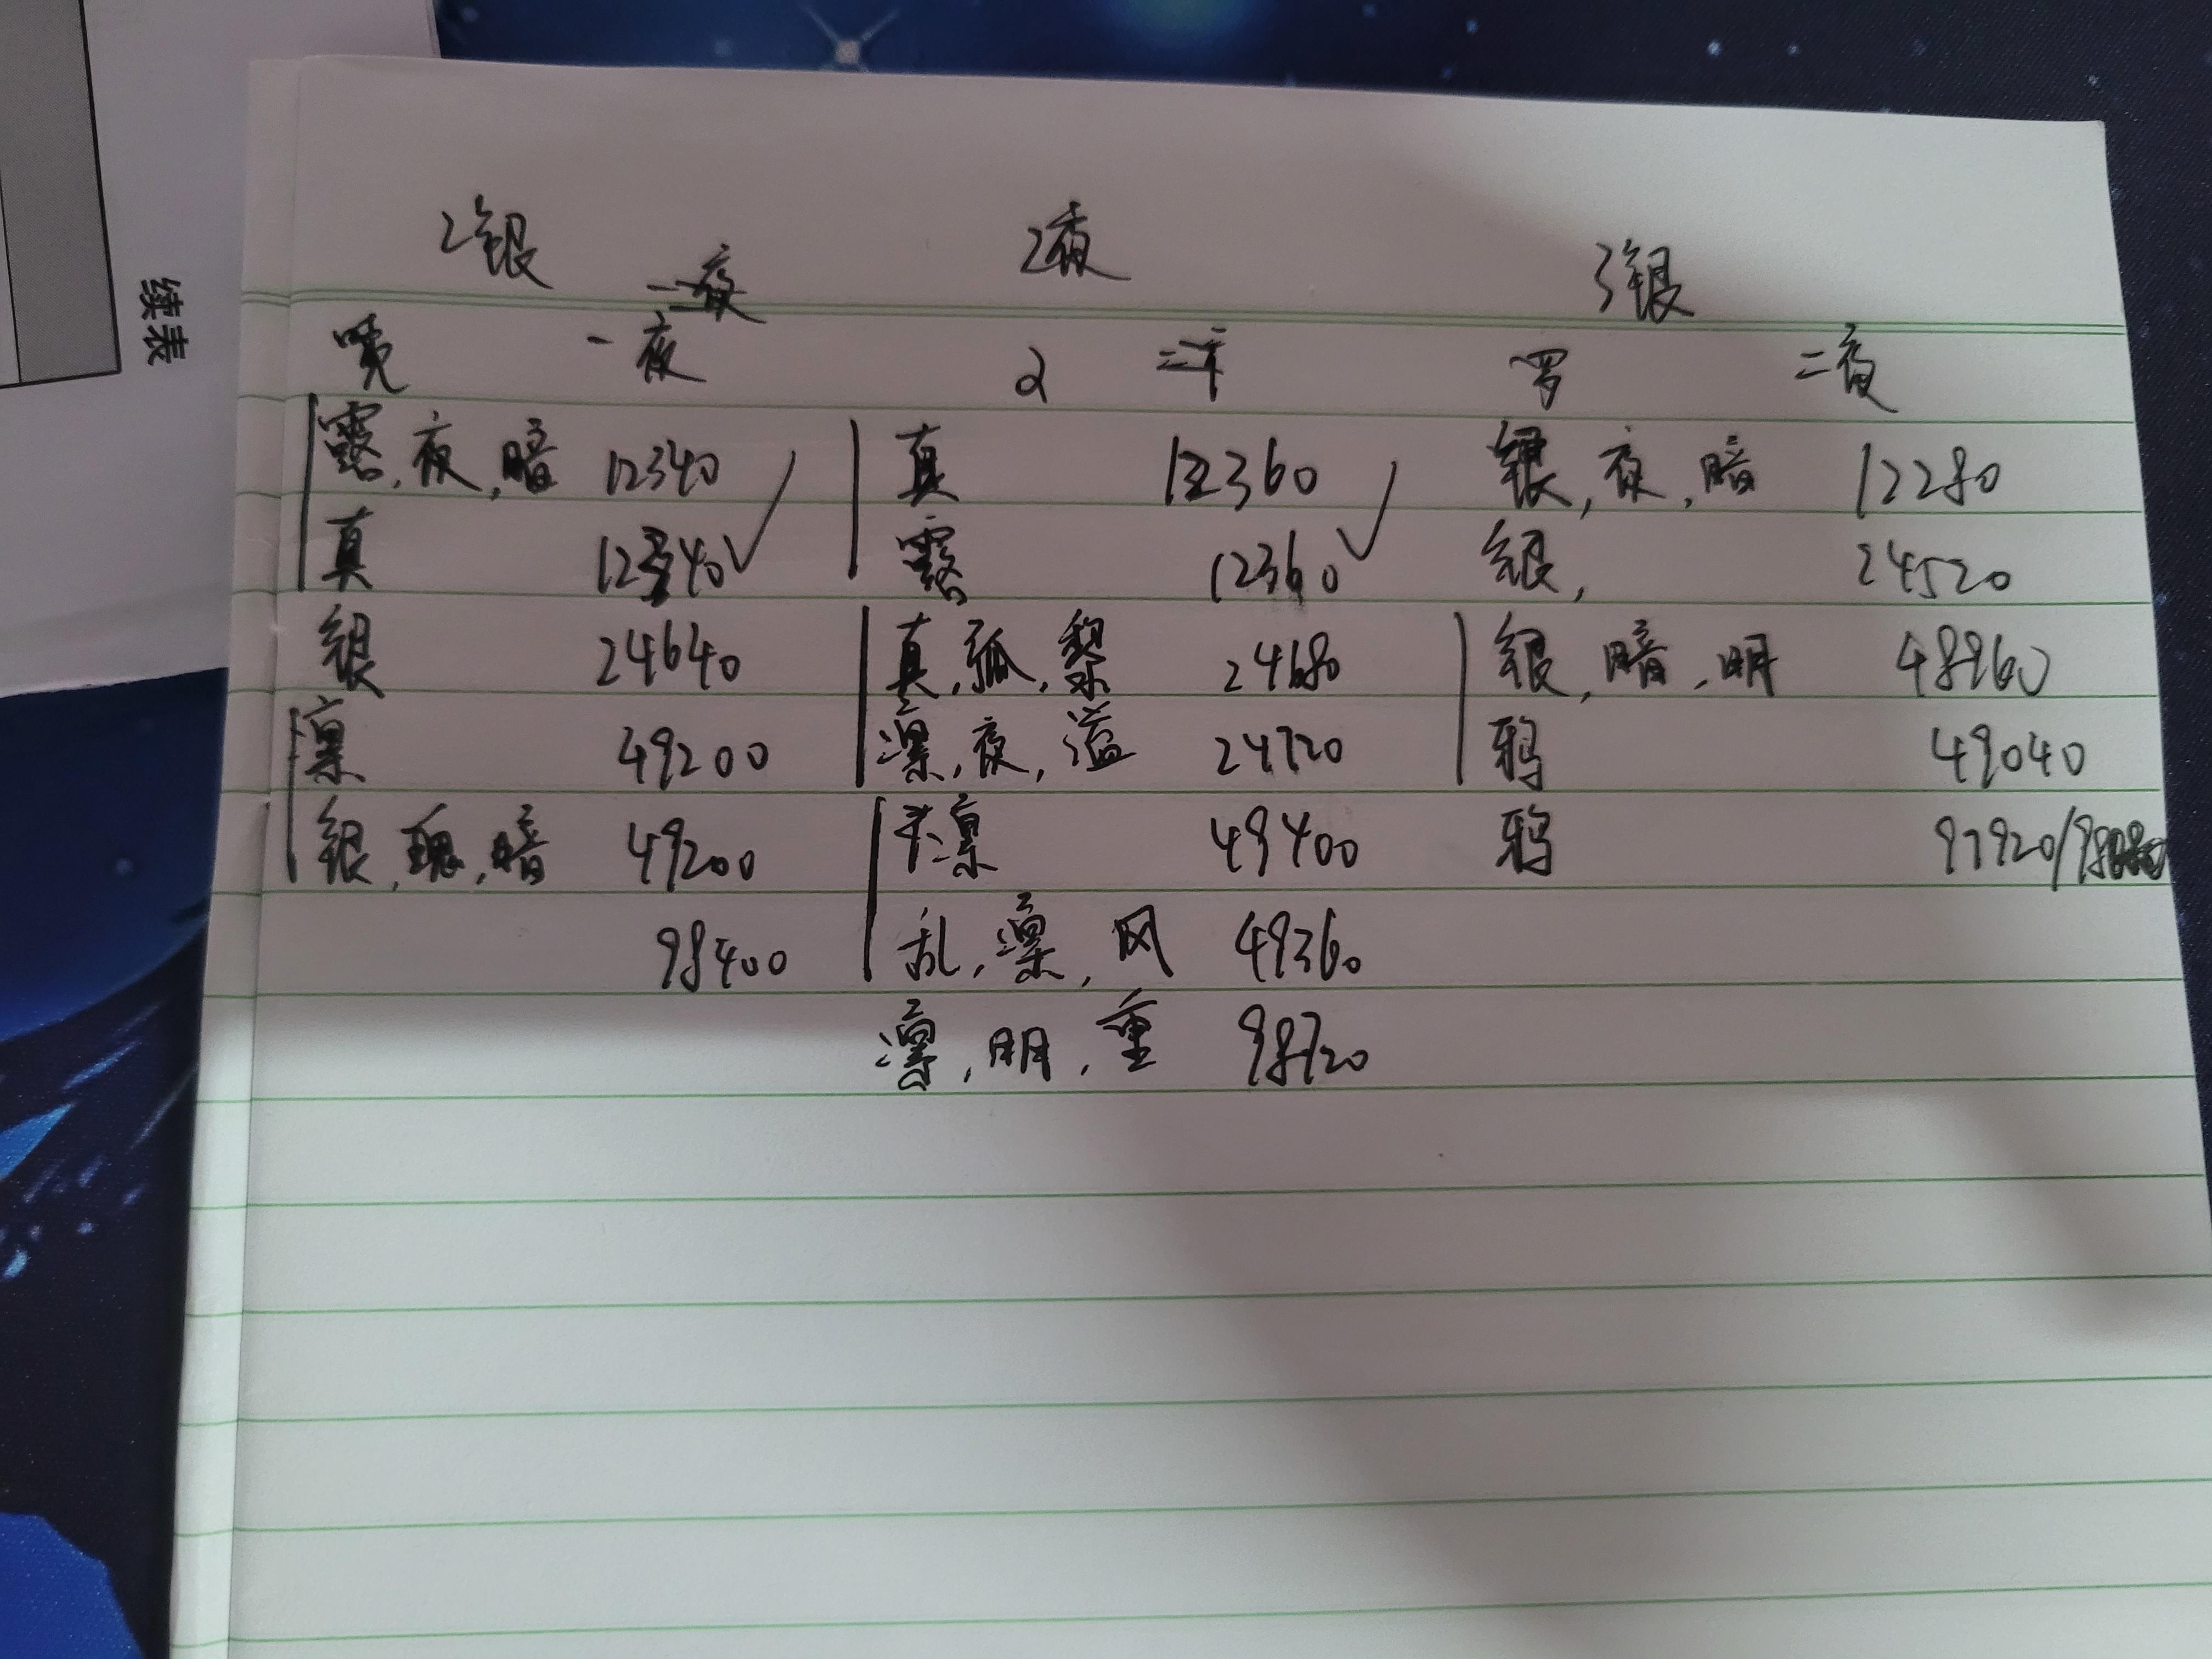 续表
2银 2夜 3银
一夜
一夜 2 二千 罗 二夜
露,夜,暗 12340 真 12360 银,夜,暗 12280
真 12340 露 12360 银, 24520
银 24640 真,孤,黎 24680 银,暗,明 48960
凛 49200 凛,夜,溢 24720 鸦 49040
银,瑰,暗 49200 凛 49400 鸦 97920/98080
98400 乱,凛,风 49360
凛,明,重 98720